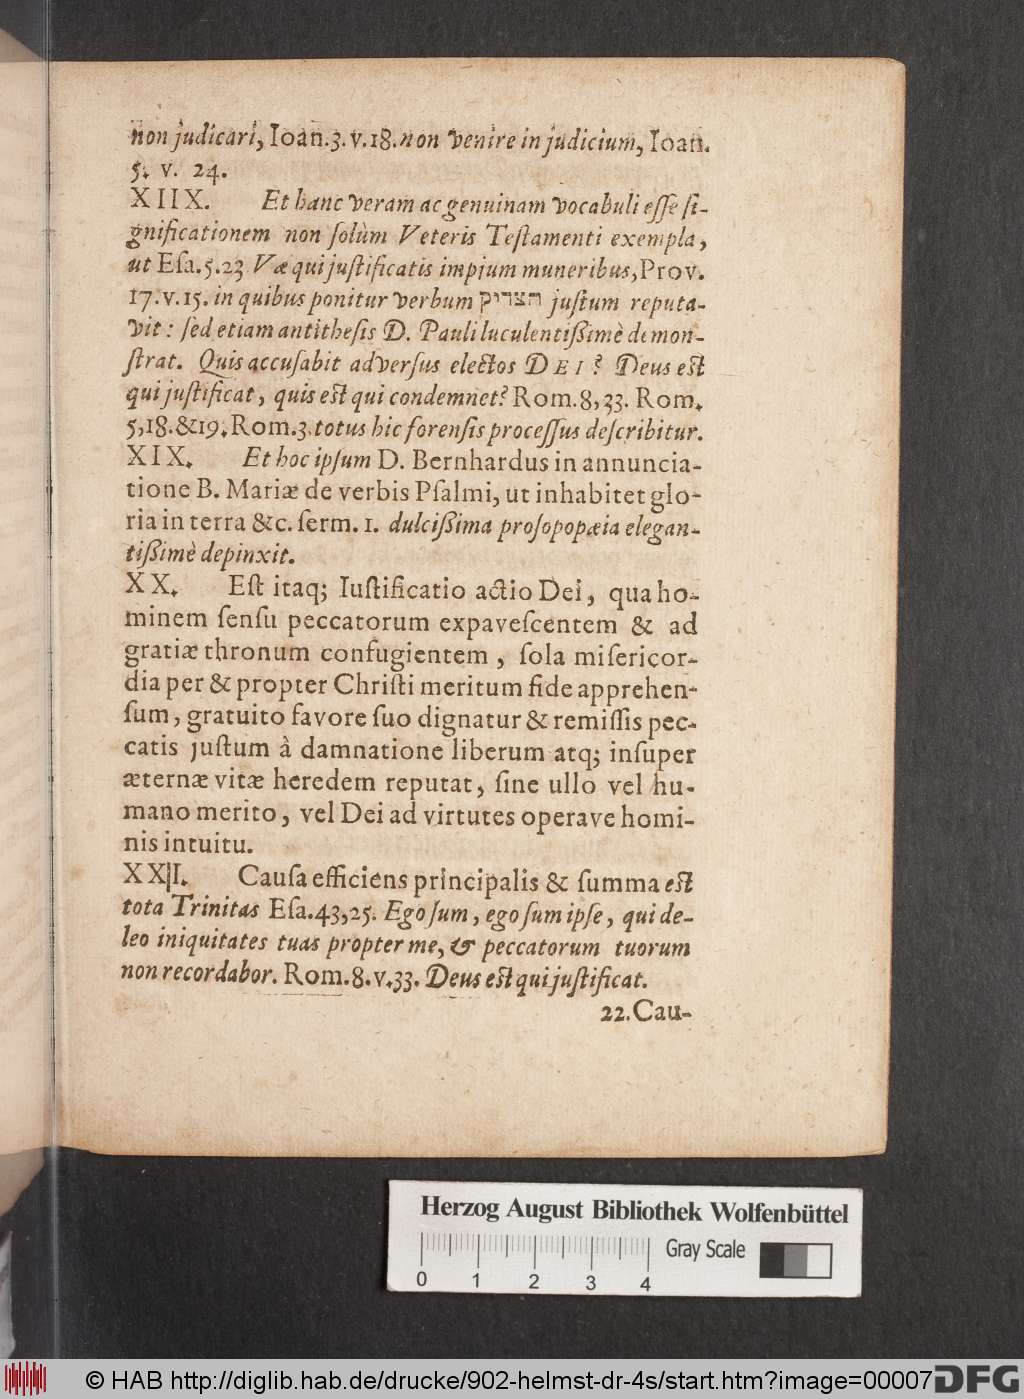 non judicari, Ioan. 3. v. 18. non venire in judicium, Ioan.
5. v. 24.
XIIX. Et hanc veram ac genuinam vocabuli esse si-
gnificationem non solùm Veteris Testamenti exempla,
ut Esa. 5. 23 Væ qui justificatis impium muneribus, Prov.
17. v. 15. in quibus ponitur verbum הצדיק justum reputa-
vit: sed etiam antithesis D. Pauli luculentißimè demon-
strat. Quis accusabit adversus electos DEI? Deus est
qui justificat, quis est qui condemnet? Rom. 8, 33. Rom.
5, 18. & 19. Rom. 3. totus hic forensis processus describitur.
XIX. Et hoc ipsum D. Bernhardus in annuncia-
tione B. Mariæ de verbis Psalmi, ut inhabitet glo-
ria in terra &c. serm. 1. dulcißima prosopopæia elegan-
tißimè depinxit.
XX. Est itaq; Iustificatio actio Dei, qua ho-
minem sensu peccatorum expavescentem & ad
gratiæ thronum confugientem, sola misericor-
dia per & propter Christi meritum fide apprehen-
sum, gratuito favore suo dignatur & remissis pec-
catis justum à damnatione liberum atq; insuper
æternæ vitæ heredem reputat, sine ullo vel hu-
mano merito, vel Dei ad virtutes operave homi-
nis intuitu.
XXI. Causa efficiens principalis & summa est
tota Trinitas Esa. 43, 25. Ego sum, ego sum ipse, qui de-
leo iniquitates tuas propter me, & peccatorum tuorum
non recordabor. Rom. 8. v. 33. Deus est qui justificat.
22. Cau-
Herzog August Bibliothek Wolfenbüttel
0 1 2 3 4 Gray Scale
© HAB http://diglib.hab.de/drucke/902-helmst-dr-4s/start.htm?image=00007 DFG